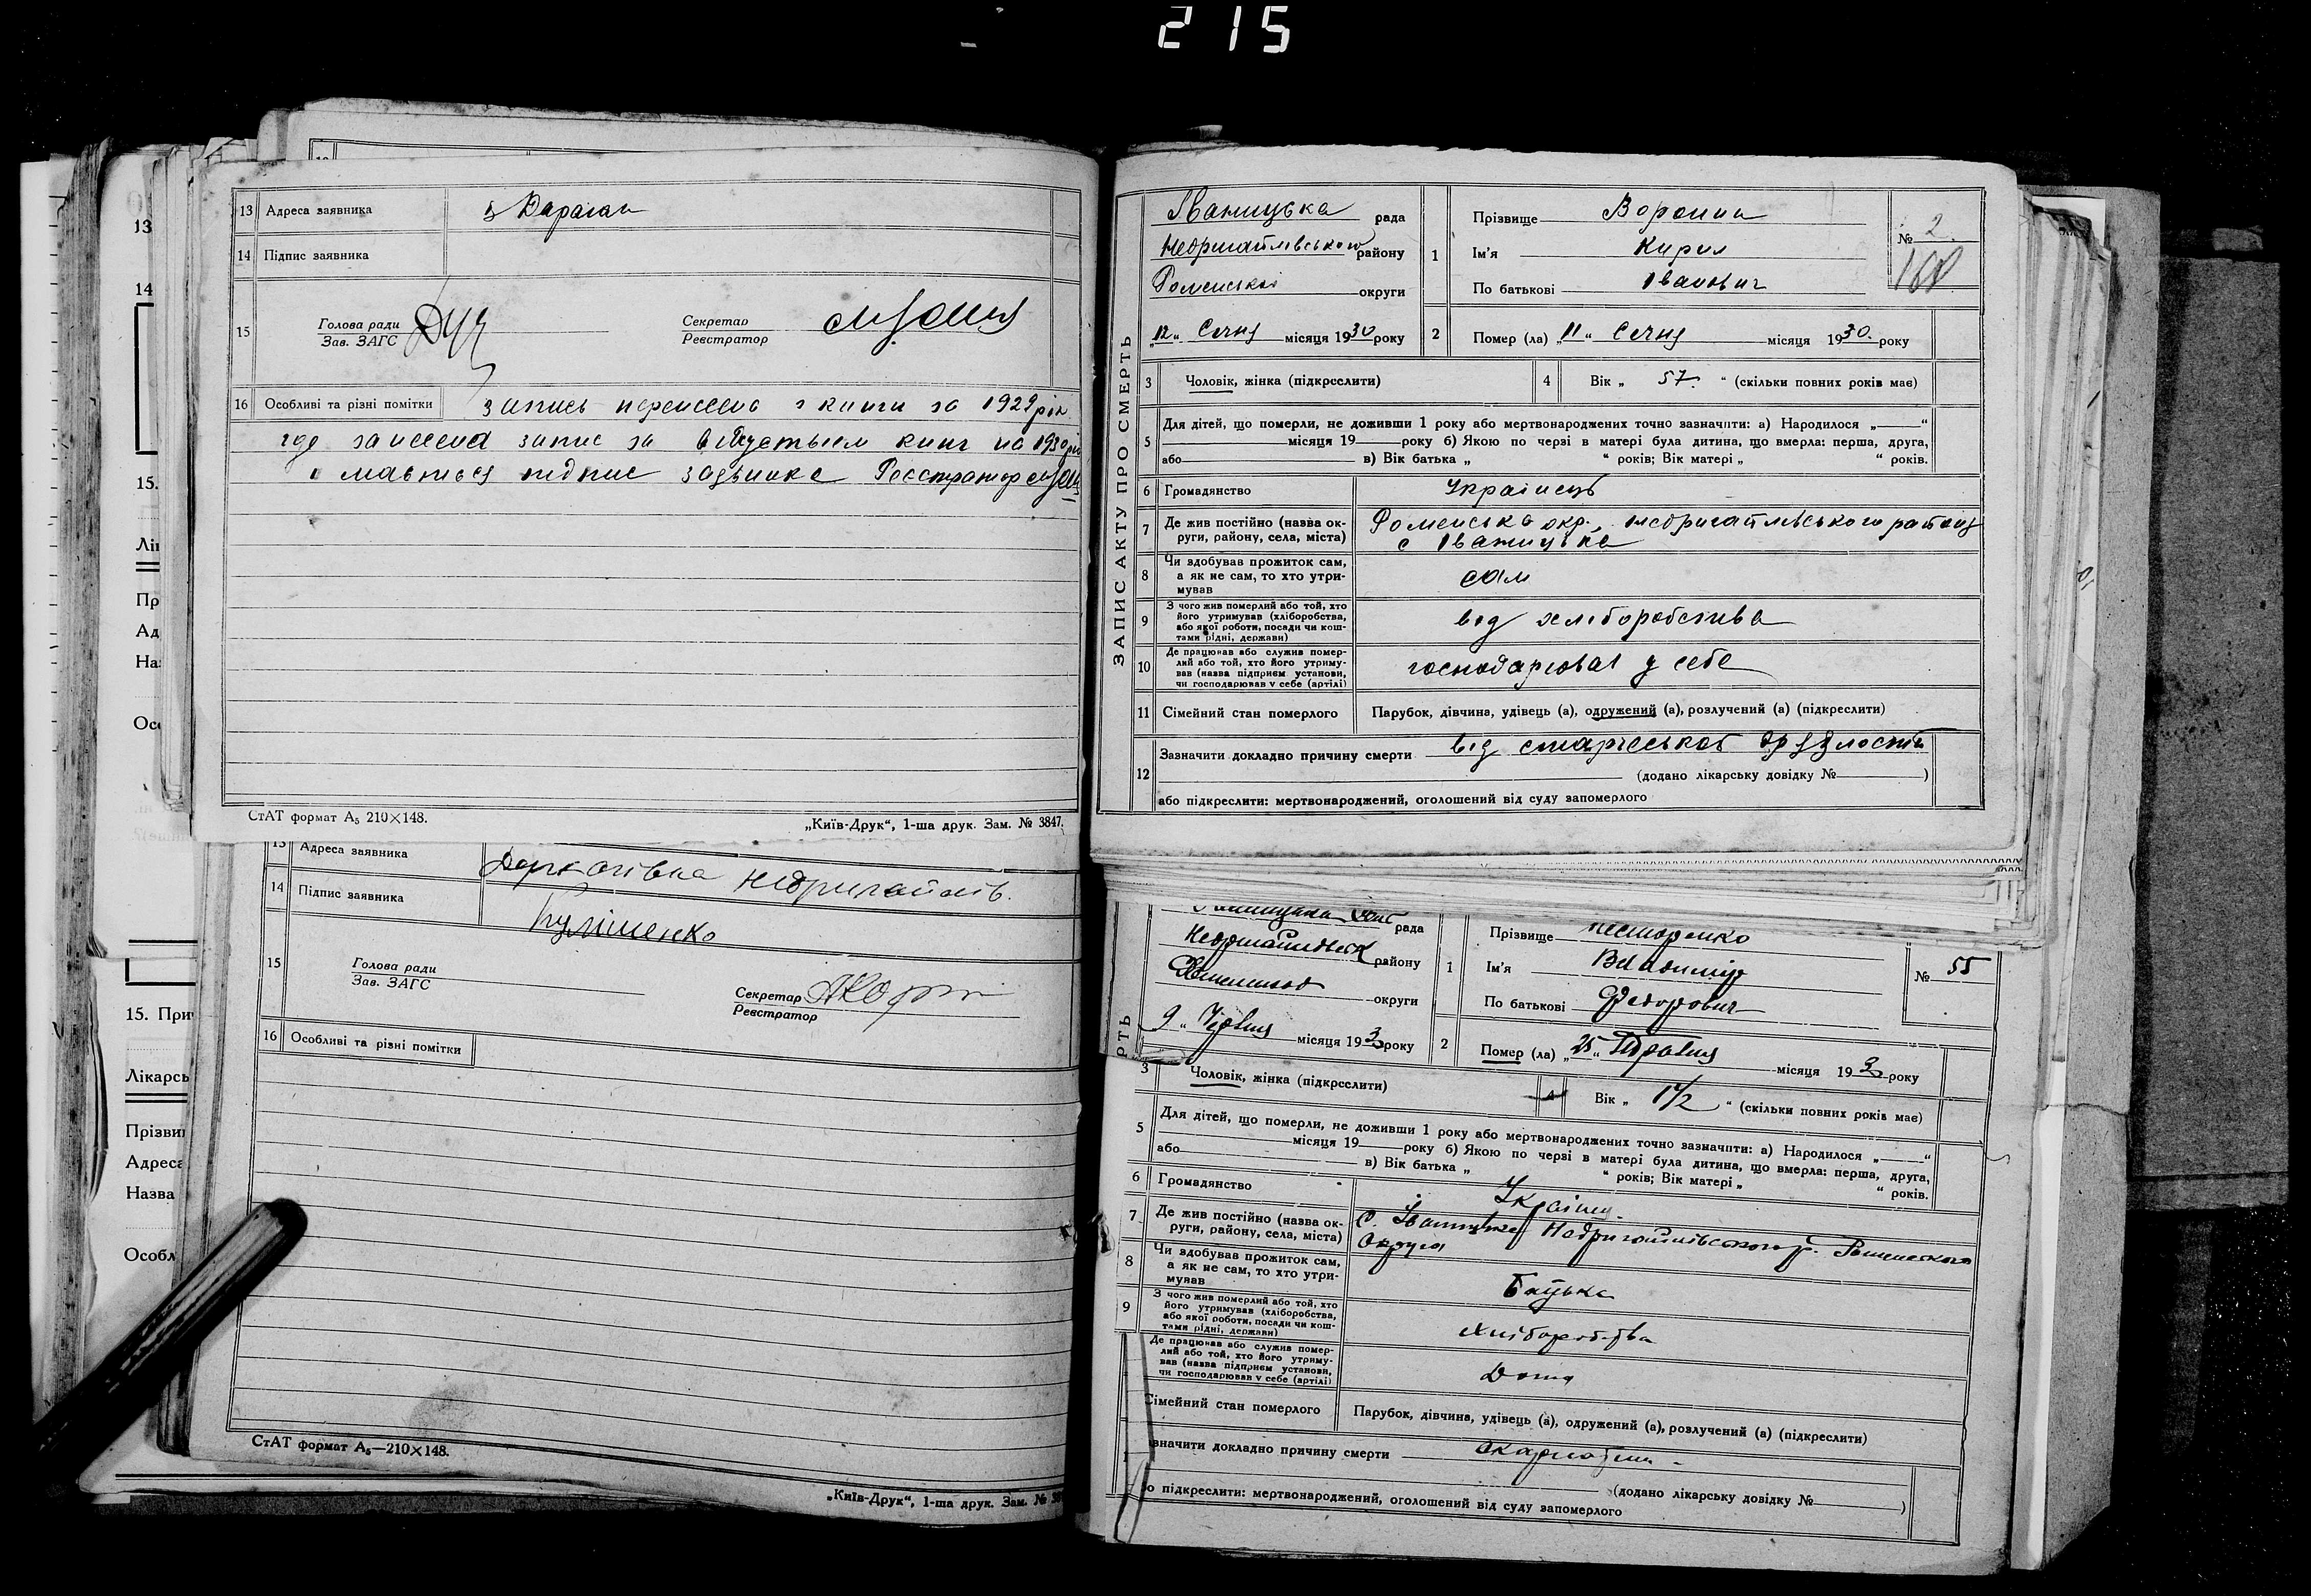 215
13 Адреса заявника
14 Підпис заявника
15 Голова ради Секретар
Зав. ЗАГС Реєстратор
16 Особливі та різні помітки запись з книги за 1929 рік
запис за книг на 1930
підпис Реєстратор
СтАТ формат А₅ 210×148.
„Київ-Друк“, 1-ша друк. Зам. № 3847.
13 Адреса заявника Недригайлів.
14 Підпис заявника Куліщенко
15 Голова ради
Зав. ЗАГС
Секретар
Реєстратор
16 Особливі та різні помітки
СтАТ формат А₅—210×148.
„Київ-Друк“, 1-ша друк. Зам. №
ЗАПИС АКТУ ПРО СМЕРТЬ
Іваницька рада
Недригайлівського району
Роменської округи
„12“ Січня місяця 1930 року
1 Прізвище
Ім'я Кирил
По батькові Іванович
№ 2
2 Помер (ла) „11“ Січня місяця 1930. року
3 Чоловік, жінка (підкреслити)
4 Вік „ 57. “ (скільки повних років має)
5 Для дітей, що померли, не доживши 1 року або мертвонароджених точно зазначити: а) Народилося „ “
місяця 19 року б) Якою по черзі в матері була дитина, що вмерла: перша, друга,
або в) Вік батька „ “ років; Вік матері „ “ років.
6 Громадянство Українець
7 Де жив постійно (назва ок- Роменська окр., Недригайлівського району
руги, району, села, міста) с Іваницька
8 Чи здобував прожиток сам,
а як не сам, то хто утри- сам
мував
9 З чого жив померлий або той, хто
його утримував (хліборобства, від хліборобства
або якої роботи, посади чи кош-
тами рідні, держави)
10 Де працював або служив помер-
лий або той, хто його утриму- господарював у себе
вав (назва підприєм установи,
чи господарював у себе (артілі)
11 Сімейний стан померлого Парубок, дівчина, удівець (а), одружений (а), розлучений (а) (підкреслити)
12 Зазначити докладно причину смерти від
(додано лікарську довідку № )
або підкреслити: мертвонароджений, оголошений від суду запомерлого
рада
району
округи
9 „ Червня місяця 193 року
1 Прізвище Несторенко
Ім'я Владимир
По батькові Федорович
№ 55
2 Помер (ла) „25“ Травня місяця 193 року
3 Чоловік, жінка (підкреслити)
4 Вік „ 1½ “ (скільки повних років має)
5 Для дітей, що померли, не доживши 1 року або мертвонароджених точно зазначити: а) Народилося „ “
місяця 19 року б) Якою по черзі в матері була дитина, що вмерла: перша, друга,
або в) Вік батька „ “ років; Вік матері „ “ років.
6 Громадянство
7 Де жив постійно (назва ок- с.
руги, району, села, міста) Округа
8 Чи здобував прожиток сам,
а як не сам, то хто утри- Батько
мував
9 З чого жив померлий або той, хто
його утримував (хліборобства, Хліборобства
або якої роботи, посади чи кош-
тами рідні, держави)
Де працював або служив помер-
лий або той, хто його утриму- Дома
вав (назва підприєм установи,
чи господарював у себе (артілі)
Сімейний стан померлого Парубок, дівчина, удівець (а), одружений (а), розлучений (а) (підкреслити)
значити докладно причину смерти
(додано лікарську довідку № )
о підкреслити: мертвонароджений, оголошений від суду запомерлого